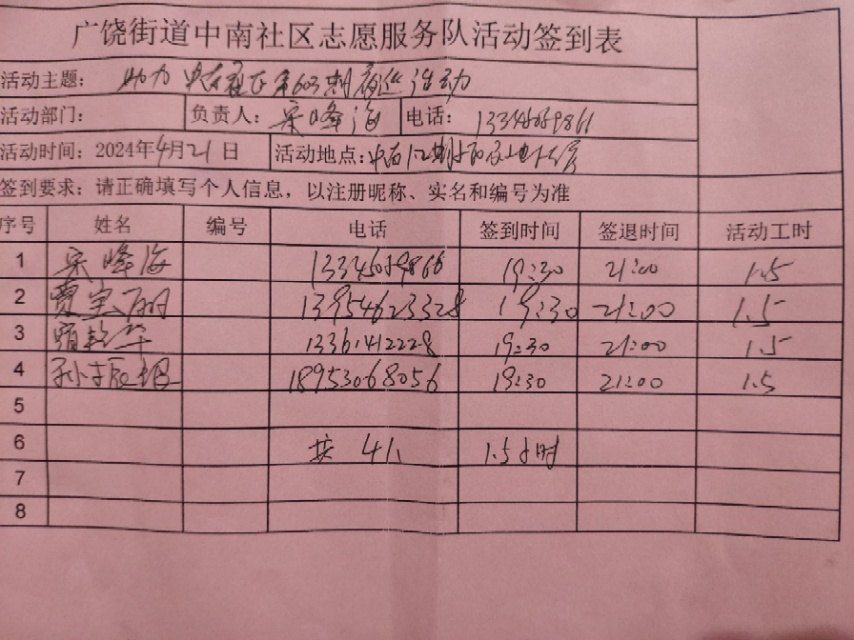 广饶街道中南社区志愿服务队活动签到表
活动主题: 助力 第603期夜巡活动
活动部门: 负责人: 宋峰海 电话:
活动时间: 2024年4月21日 活动地点:
签到要求: 请正确填写个人信息，以注册昵称、实名和编号为准
序号 姓名 编号 电话 签到时间 签退时间 活动工时
1 宋峰海 19:30 21:00 1.5
2 贾宝丽 13954623328 19:30 21:00 1.5
3 13361412228 19:30 21:00 1.5
4 18953068056 19:30 21:00 1.5
5
6 共 4人 1.5小时
7
8